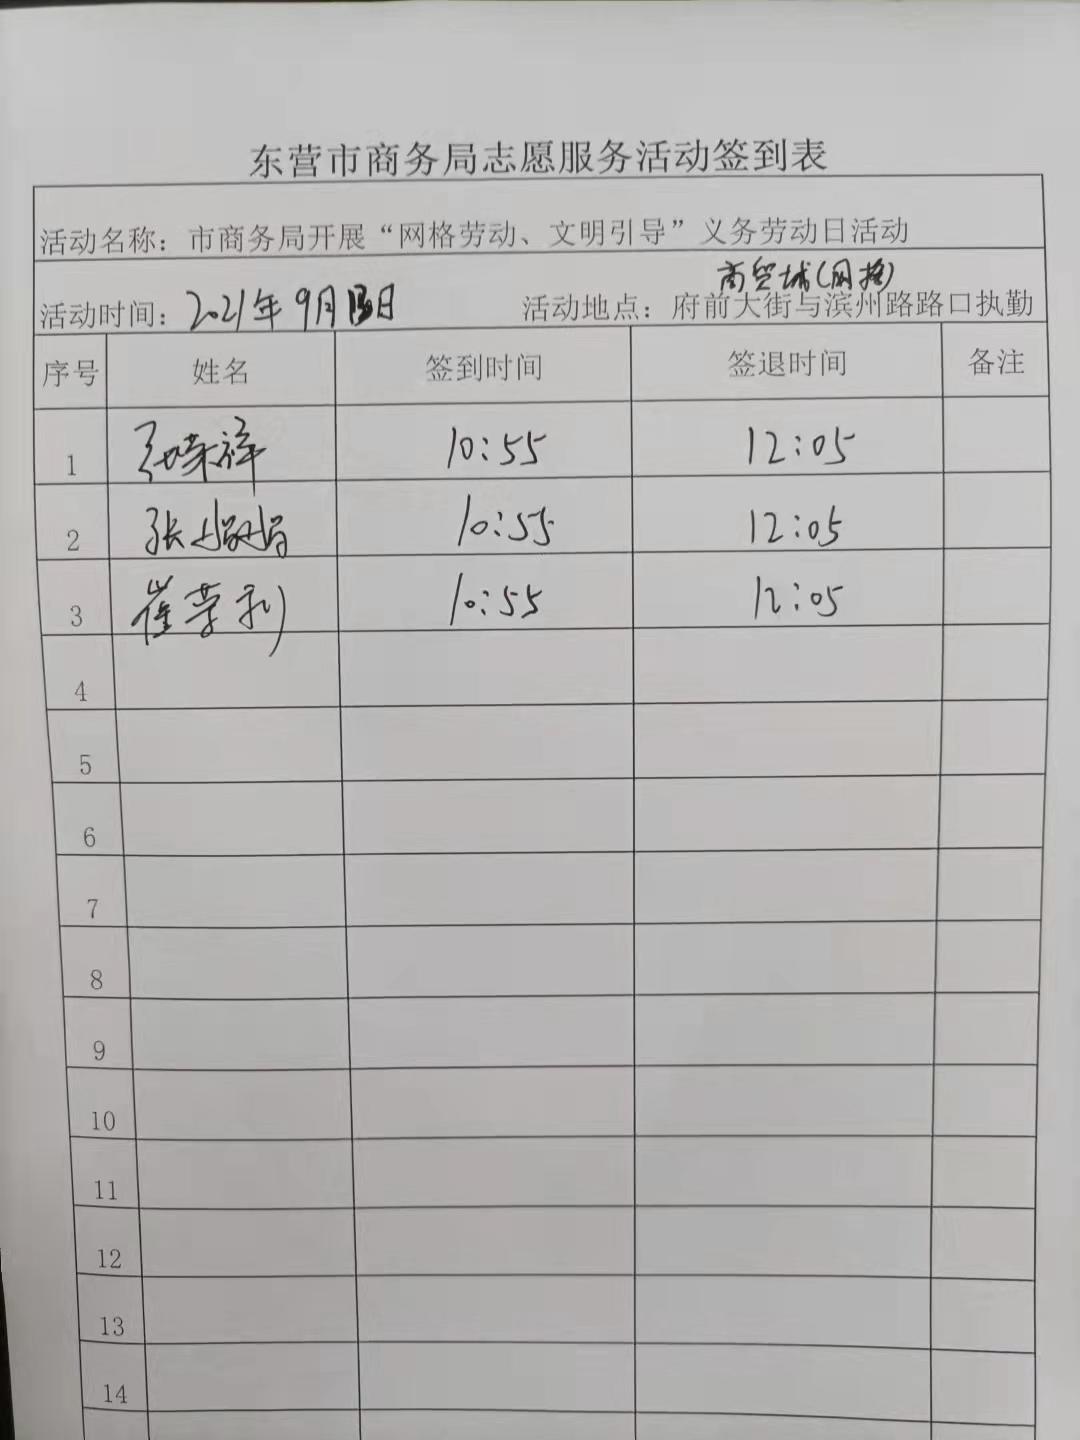 东营市商务局志愿服务活动签到表
活动名称：市商务局开展“网格劳动、文明引导”义务劳动日活动
商贸城(网格)
活动时间：2021年9月日 活动地点：府前大街与滨州路路口执勤
序号 姓名 签到时间 签退时间 备注
1 10:55 12:05
2 张 10:55 12:05
3 崔荣利 10:55 12:05
4
5
6
7
8
9
10
11
12
13
14